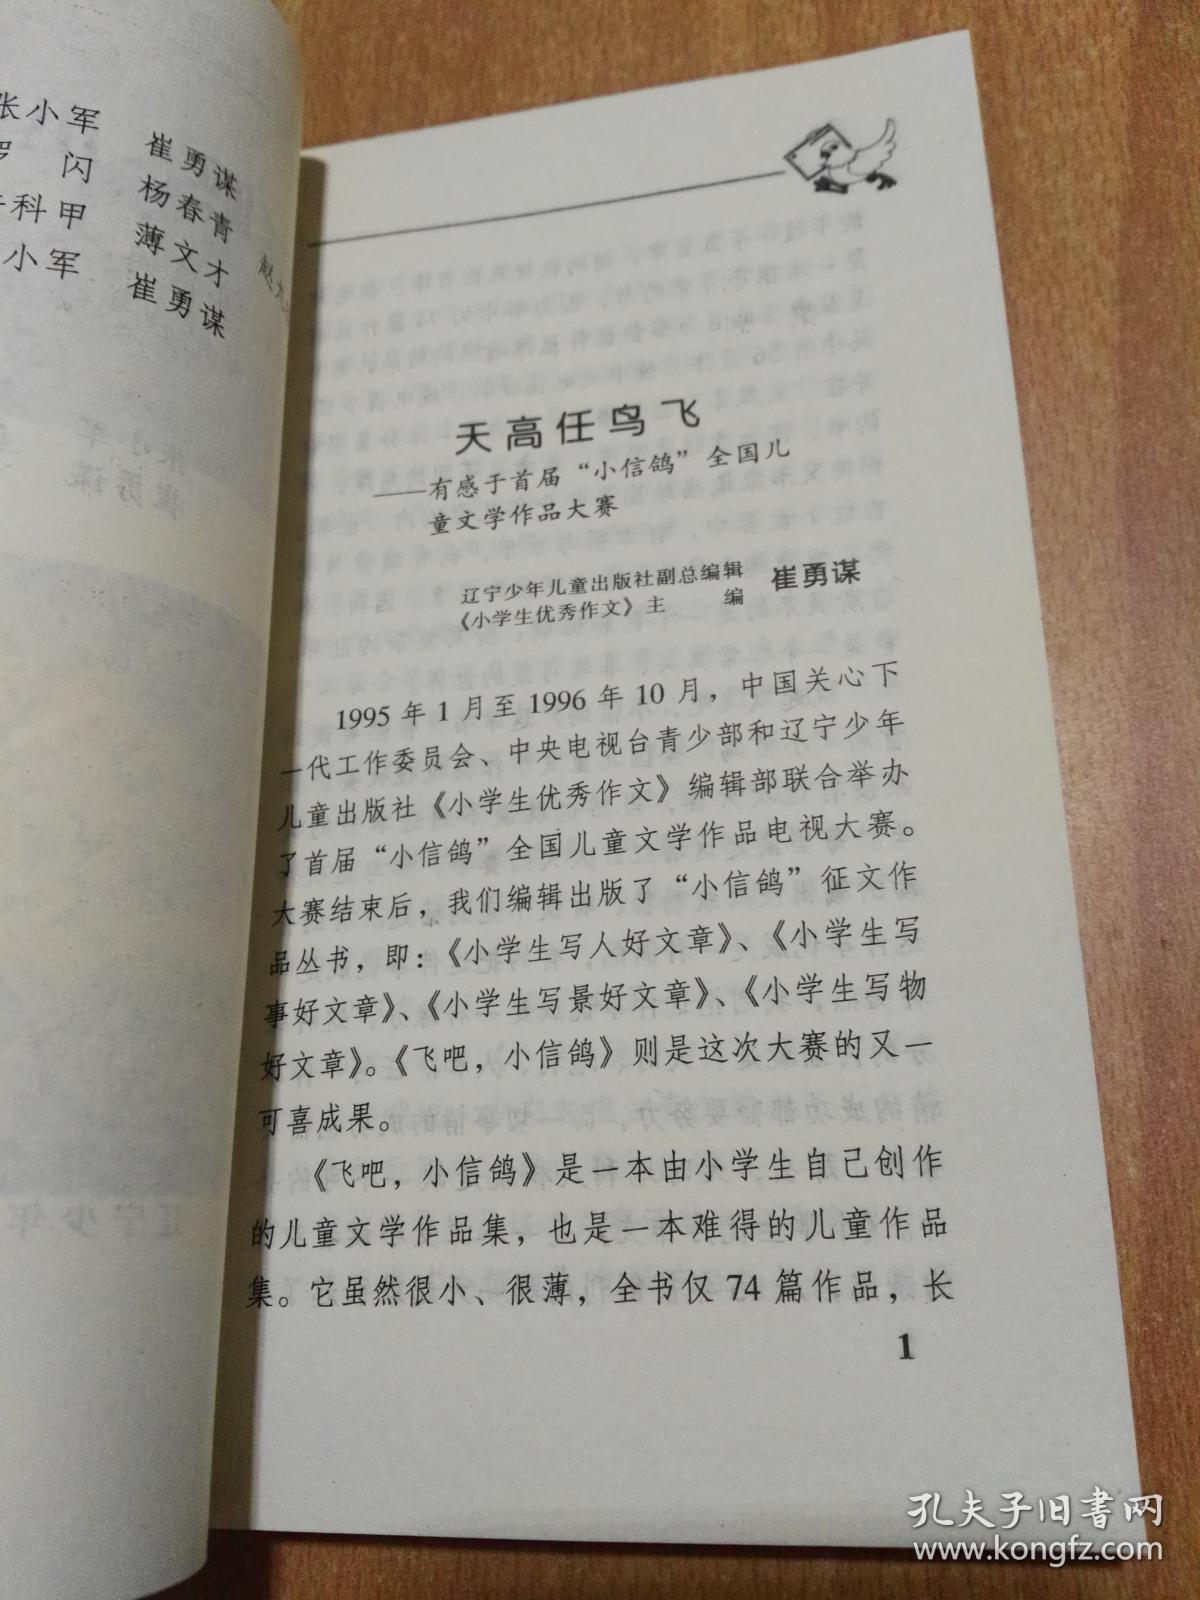 张小军 崔勇谋
闪 杨春青
科甲 薄文才
小军 崔勇谋
天高任鸟飞
——有感于首届“小信鸽”全国儿
童文学作品大赛
辽宁少年儿童出版社副总编辑
《小学生优秀作文》主 编
崔勇谋
1995 年 1 月至 1996 年 10 月，中国关心下
一代工作委员会、中央电视台青少部和辽宁少年
儿童出版社《小学生优秀作文》编辑部联合举办
了首届“小信鸽”全国儿童文学作品电视大赛。
大赛结束后，我们编辑出版了“小信鸽”征文作
品丛书，即：《小学生写人好文章》、《小学生写
事好文章》、《小学生写景好文章》、《小学生写物
好文章》。《飞吧，小信鸽》则是这次大赛的又一
可喜成果。
《飞吧，小信鸽》是一本由小学生自己创作
的儿童文学作品集，也是一本难得的儿童作品
集。它虽然很小、很薄，全书仅 74 篇作品，长
1
孔夫子旧书网
www.kongfz.com